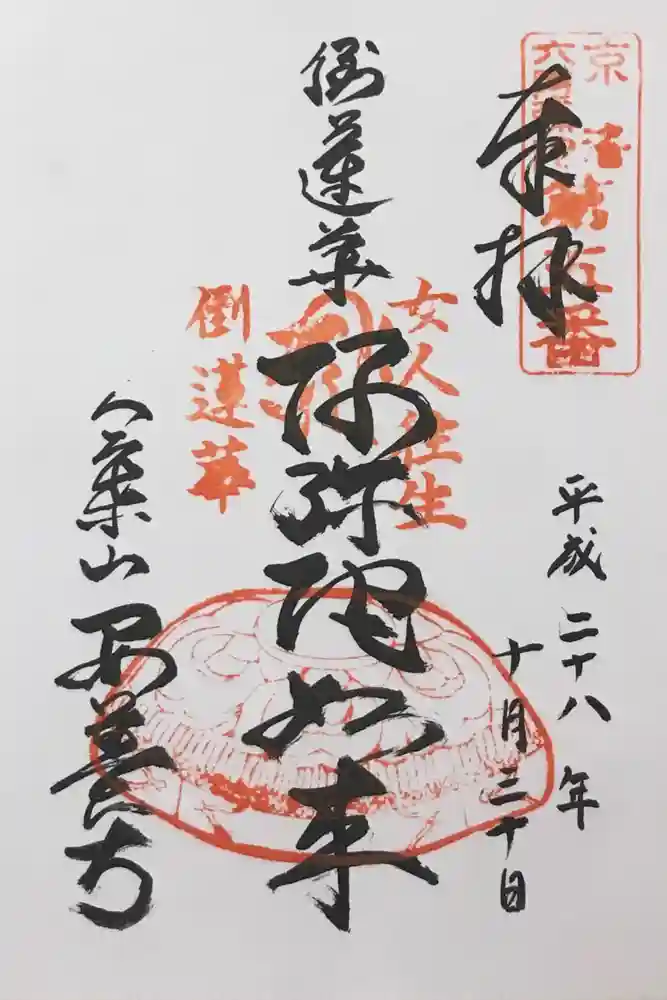 奉拝
第五番
平成二十八年
十月三十日
女人往生
倒蓮華
阿弥陀如来
倒蓮華
八葉山
安養寺